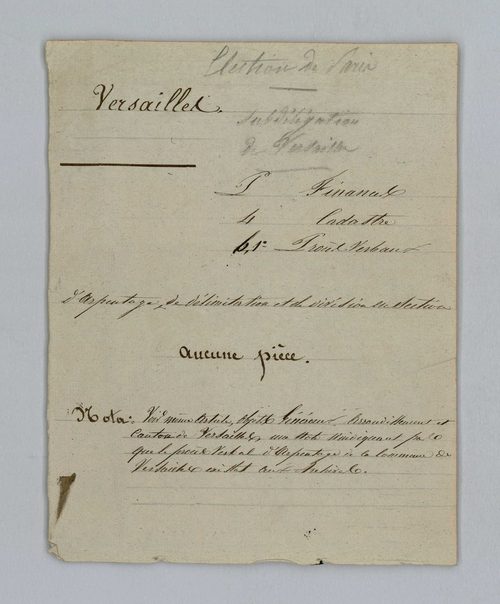 Election de Paris
Versailles.
subdélégation
de Versailles
P Finances
4 Cadastre
6,1º Procès Verbaux
d'Arpentage, de délimitation et de division en section
aucune pièce.
Nota: Voir même article, objets Généraux, Arrondissement et
Canton de Versailles, une note indiquant
que le procès Verbal d'Arpentage de la Commune de
Versailles aux Archives.